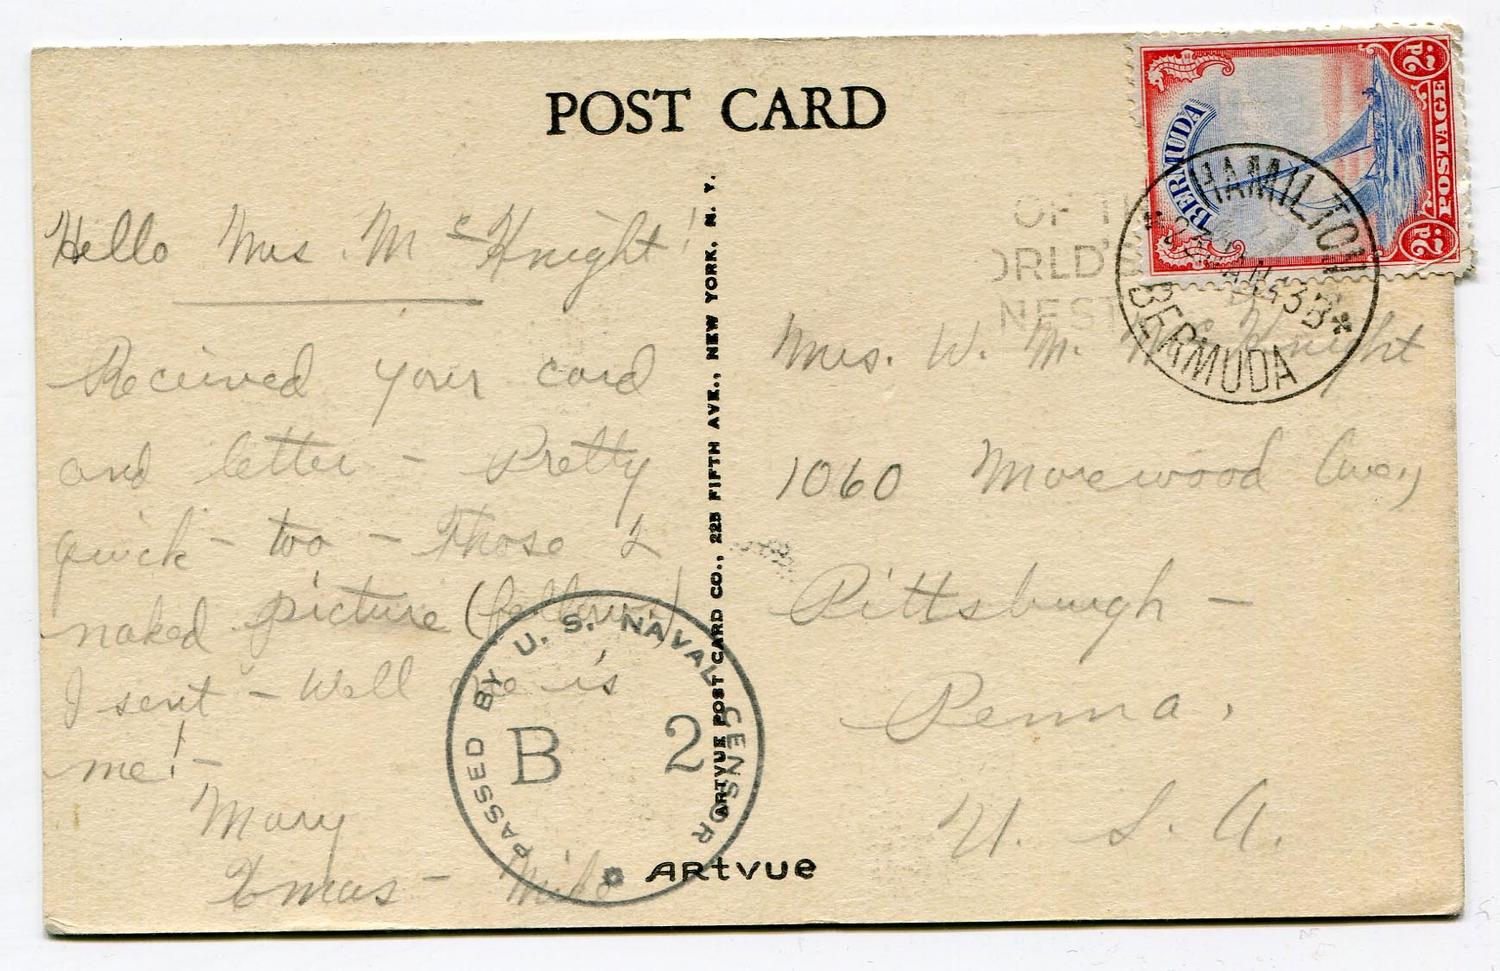 POST CARD
Hello Mrs. McKnight!
Received your card
and letter - Pretty
quick - too - Those 2
naked picture (fellows)
I sent - Well one is
me! -
Mary
Xmas - Mike
PASSED BY U. S. NAVAL CENSOR
B 2
ARTVUE POST CARD CO., 225 FIFTH AVE., NEW YORK, N. Y.
ARTVUE
BERMUDA
2d. POSTAGE 2d.
HAMILTON
BERMUDA
OF T
ORLD'
NEST
Mrs. W. M. McKnight
1060 Morewood Ave,
Pittsburgh -
Penna.
U. S. A.